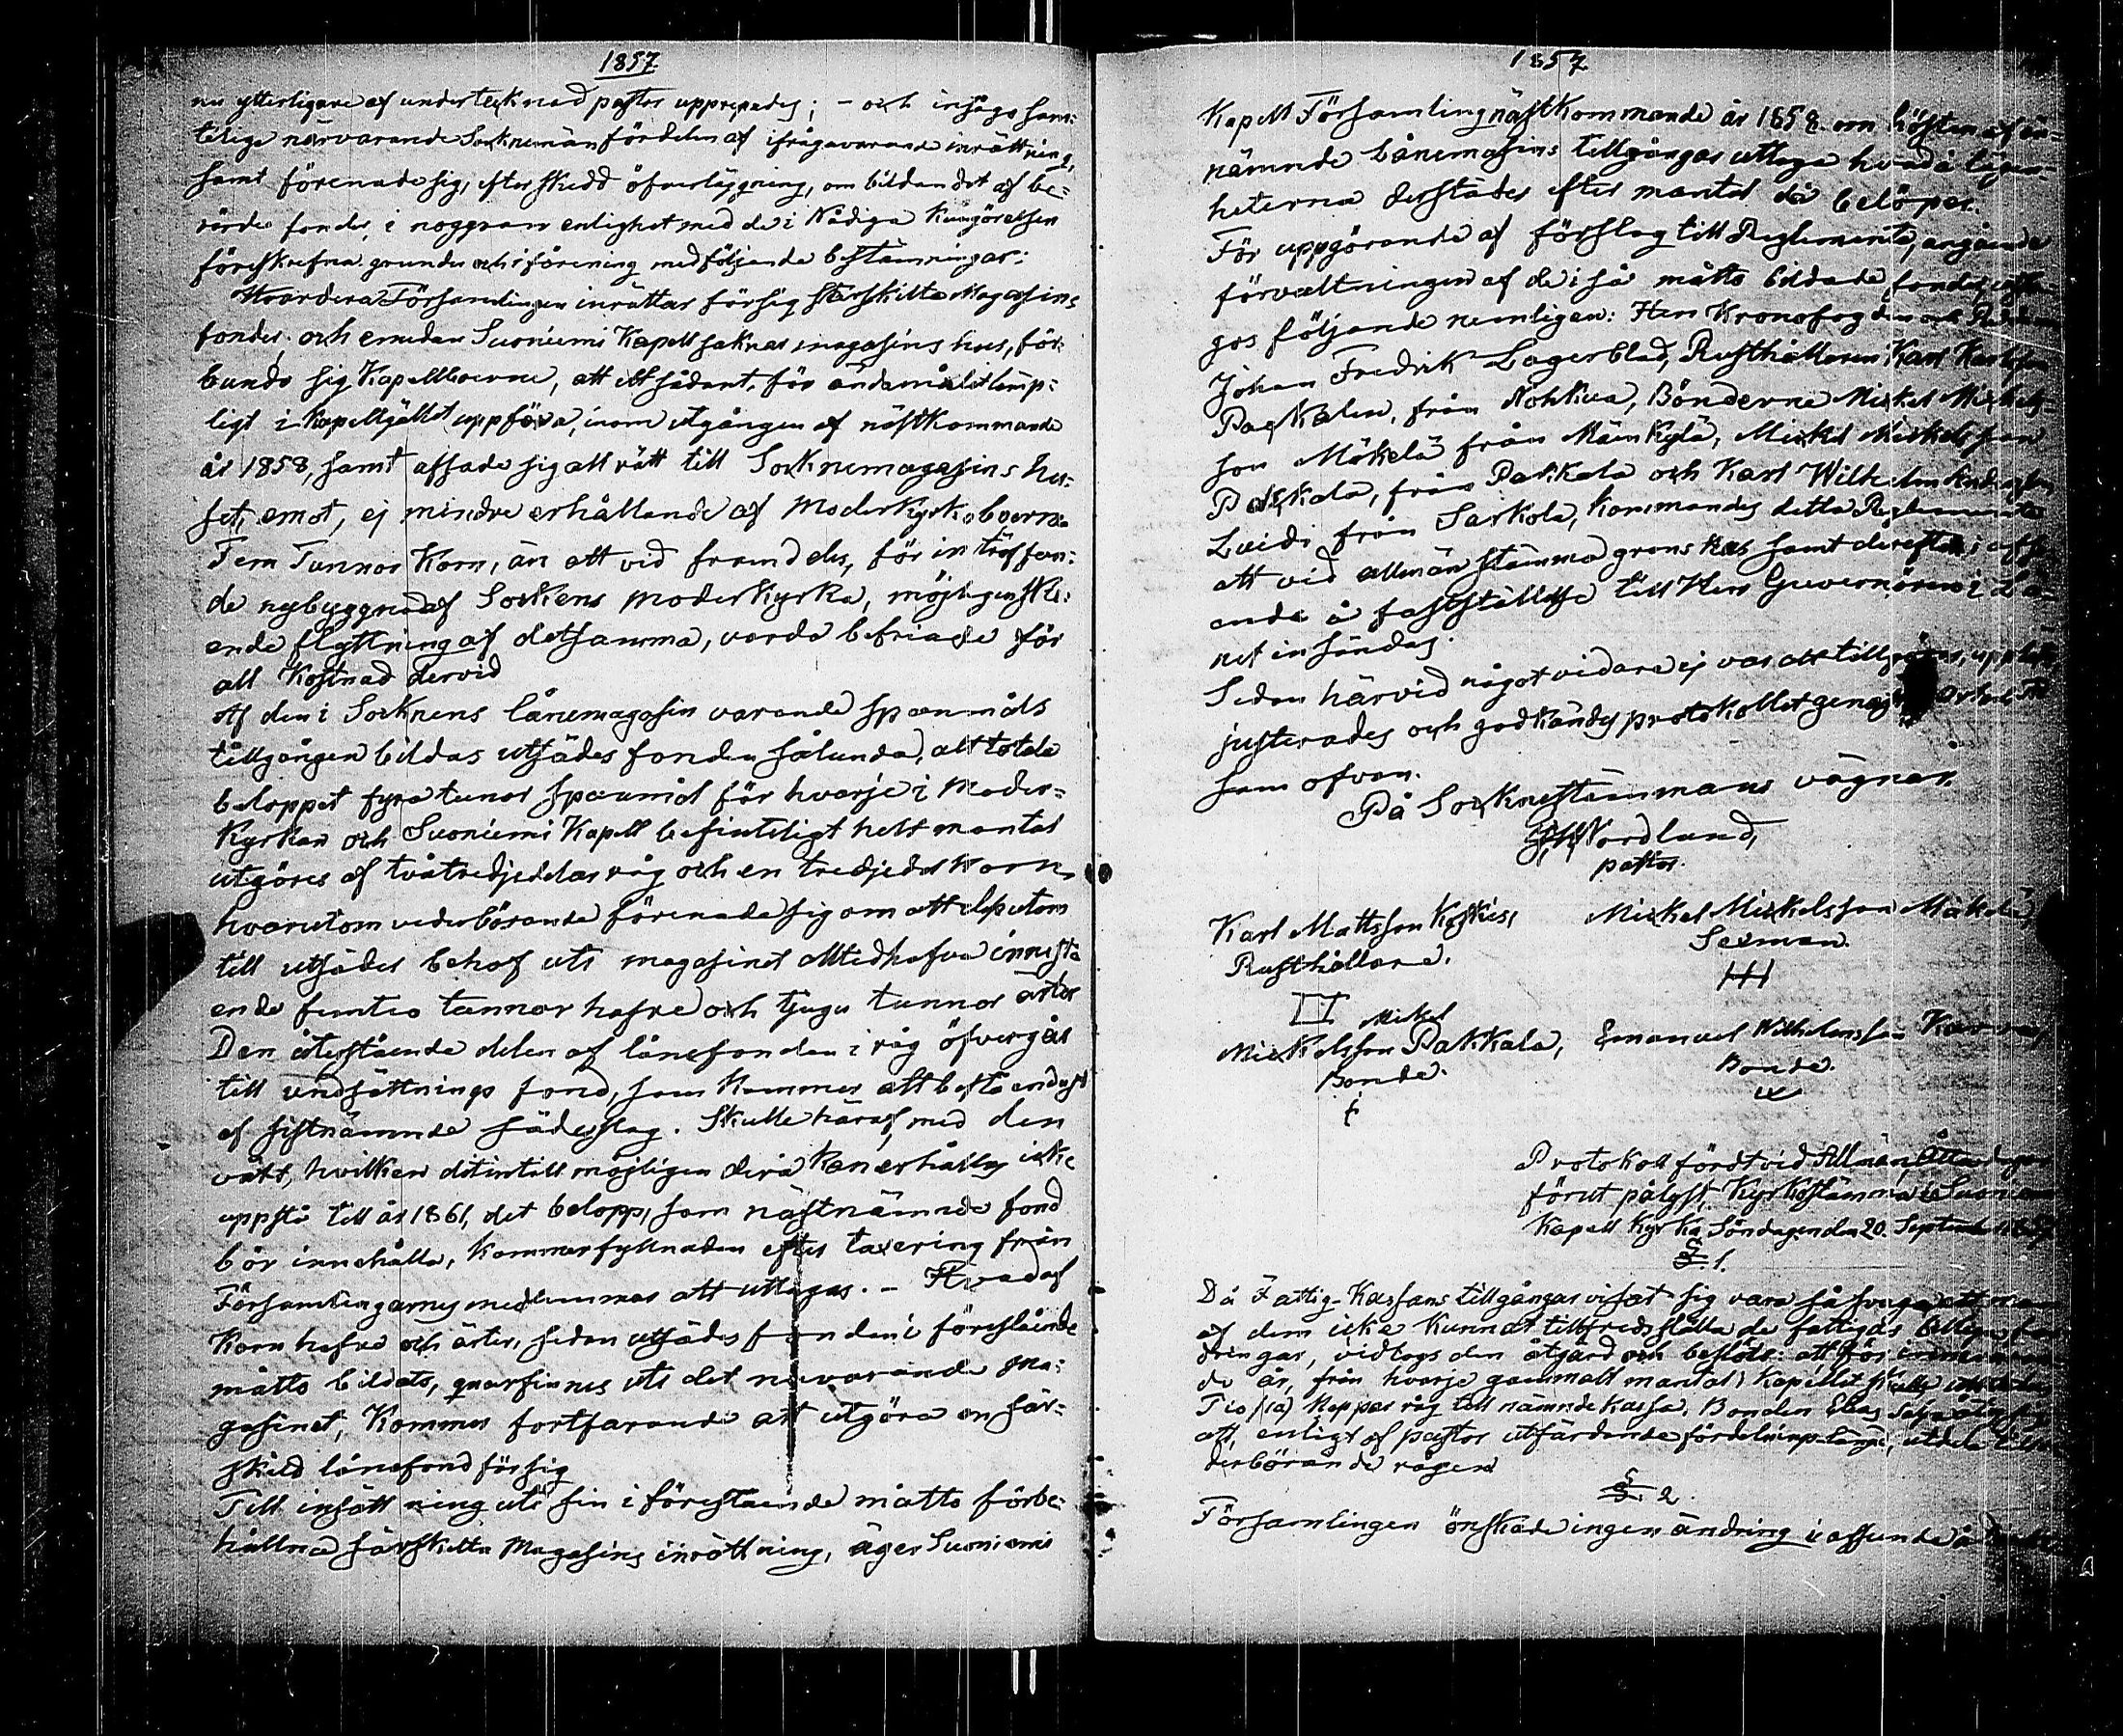 1857
nu ytterligare af undertecknad pastor upprepades; - och insågo sam:
telige närvarande Socknemän fördelen af ifrågavarande inrättning,
samt förenade sig, efter skedd öfverläggning, om bildandet af be:
rörde fonder, i noggran enlighet med de i Nådiga Kungörelsen
föreskrefna grunder och i förening med följande bestämningar:
Hvardera Församlingen inrättar för sig särskilta Magasins
fonder. och emedan Suoniemi Kapell saknar magasins hus, för:
bundo sig Kapellboerne, att ett sådant, för ändamålet lämp:
ligt i Kapellgället uppföra, inom utgången af nästkommande
år 1858, samt afsade sig all rätt till Socknemagasins hu:
set, emot, ej mindre erhållande af Moderkyrkoboerne
Fem Tunnor Korn, än att vid framdeles, för inträffan:
de nybyggnad af Sockens moderkyrka, möjligen ske:
ende flyttning af detsamma, varda befriade för
all Kostnad dervid
Af den i Socknens lånemagasin varande spanmåls
tillgången bildas utsädes fonden sålunda, att totala
beloppet fyra tunnor spanmål för hvarje i Moder=
Kyrkan och Suoniemi Kapell befinteligt helt mantal
utgöres af två tredjedelar råg och en tredjedel Korn,
hvarutom vederbörande förenade sig om att desutom
till utsädes behof uti magasinet alltid hafva innestå
ende femtio tunnor hafre och tjugu tunnor ärter
Den återstående delen af lånefonden i råg öfvergår
till undsättnings fond, som Kommer att bestå endast
af sistnämnde sädesslag. Skulle häraf med den
växt, hvilken ditintill möjligen derå Kan erhållas icke
uppstå till år 1861, det belopp, som nästnämnde fond
bör innehålla, Kommer fyllnaden efter taxering från
Församlingarnes medlemmar att uttagas. - Hvad af
Korn hafre och ärter, sedan utsädes fonden i föreslående
måtto bildats, qvarfinnes uti det nuvarande Ma:
gasinet, Kommer fortfarande att utgöra en sär:
skild lånefond för sig
Till insättning uti sin i förestående måtto förbe:
hållna särskilta Magasins inrättning, äger Suoniemi
1857
Kapell Församling nästkommande år 1858 om hösten af
nämnde lånemagasins tillgångar uttaga hvad å lägen-
heterna derstädes efter mantal då belöper.
För uppgörande af förslag till Reglemente, angående
förvaltningen af de i så måtto bildade fonder
gos följande nemligen: Herr Kronofogden och
Johan Fredrik Lagerblad, Rusthållaren Karl Karlsson
Packalen, från Nohkua, Bönderne Mickel Mickels-
son Mäkelä från Mäenkylä, Mickel Mickelsson
Pakkala, från Pakkala och Karl Wilhelm
Luidi från Sarkola, Kommandes detta Reglemente
att vid allmän stämma granskas samt derefter i
ende å fastställelse till Herr Guvernören i Lä-
net insändas.
Sedan härvid något vidare ej var att tillgöras,
justerades och godkändes protokollet genast
som ofvan.
På Socknestämmans vägnar.
Nordlund,
pastor.
Karl Mattsson Koskis, Mickel Mickelsson Mäkelä
Rusthållare. Sexman.
Mickel
Mickelsson Pakkala, Emanuel Wilhelmsson
Bonde. Bonde.
Protokoll fördt vid Allmän Åtta dagar
förut pålyst Kyrkostämma i Suoniemi
Kapell Kyrka Söndagen den 20. September
§ 1.
Då Fattig-Kassans tillgångar visat sig vara så svaga att man
af dem icke Kunnat tillfredsställa de fattigas billiga for
dringar, vidtogs den åtgärd och beslöts: att för
de år, från hvarje gammalt mantal i Kapellet skulle
Tio (10) Kappar råg till nämnde Kassa. Bonden Elias
att, enligt af pastor utfärdande fördelnings-längd, utdela
derbörande rågen
§ 2.
Församlingen önskade ingen ändring i afseende å